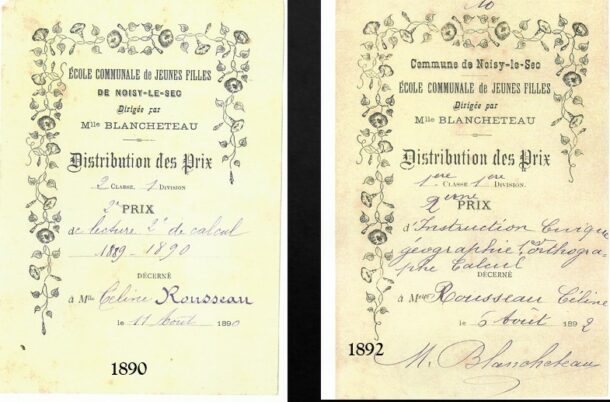 ÉCOLE COMMUNALE de JEUNES FILLES
DE NOISY-LE-SEC
Dirigée par
Mlle BLANCHETEAU
Distribution des Prix
2 CLASSE. 1 DIVISION
2e PRIX
de lecture 2e de calcul
1889-1890
DÉCERNÉ
à Mlle Céline Rousseau
le 11 Août 1890
1890
10
Commune de Noisy-le-Sec
ÉCOLE COMMUNALE de JEUNES FILLES
Dirigée par
Mlle BLANCHETEAU
Distribution des Prix
1ère CLASSE 1ère DIVISION.
2eme PRIX
d'Instruction Civique
géographie 1er orthogra-
phe Calcul
DÉCERNÉ
à Mlle Rousseau Céline
le 5 Août 1892
M. Blancheteau
1892